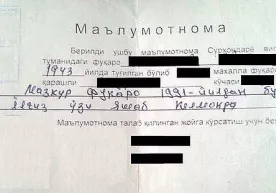 Маълумотнома
Берилди ушбу маълумотнома Сурхондарё
туманидаги фуқаро
1943 йилда туғилган бўлиб махалла
қарашли
Мазкур фуқаро 1991-йилдан
ёлғиз ўзи яшаб келмоқда
Маълумотнома талаб қилинган жойга кўрсатиш учун